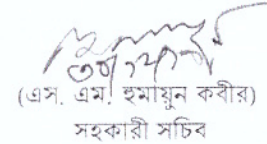 (এস. এম. হুমায়ুন কবীর)
সহকারী সচিব